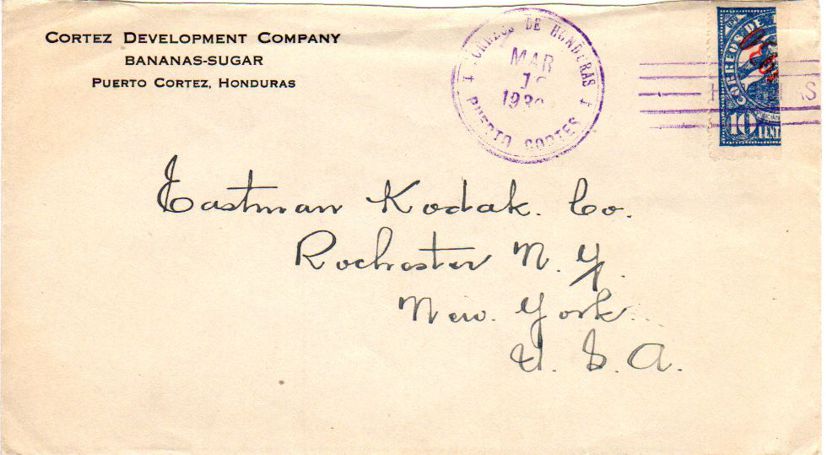 CORTEZ DEVELOPMENT COMPANY
BANANAS-SUGAR
PUERTO CORTEZ, HONDURAS
DE HONDURAS
MAR
PUERTO CORTES
CORREOS DE
10
Eastman Kodak. Co.
Rochester N. Y.
New. York.
U. S. A.